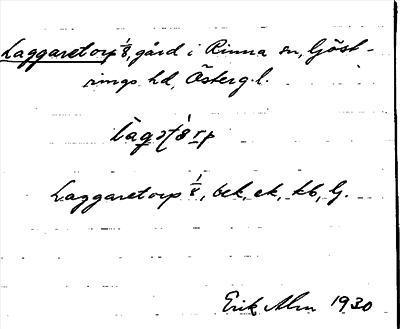 Laggaretorp 1/8, gård i Rinna sn, Göst-
rings hd, Österg.l.
Laggaretorp 1/8, bek, ek, kb, G.
Erik Alm 1930